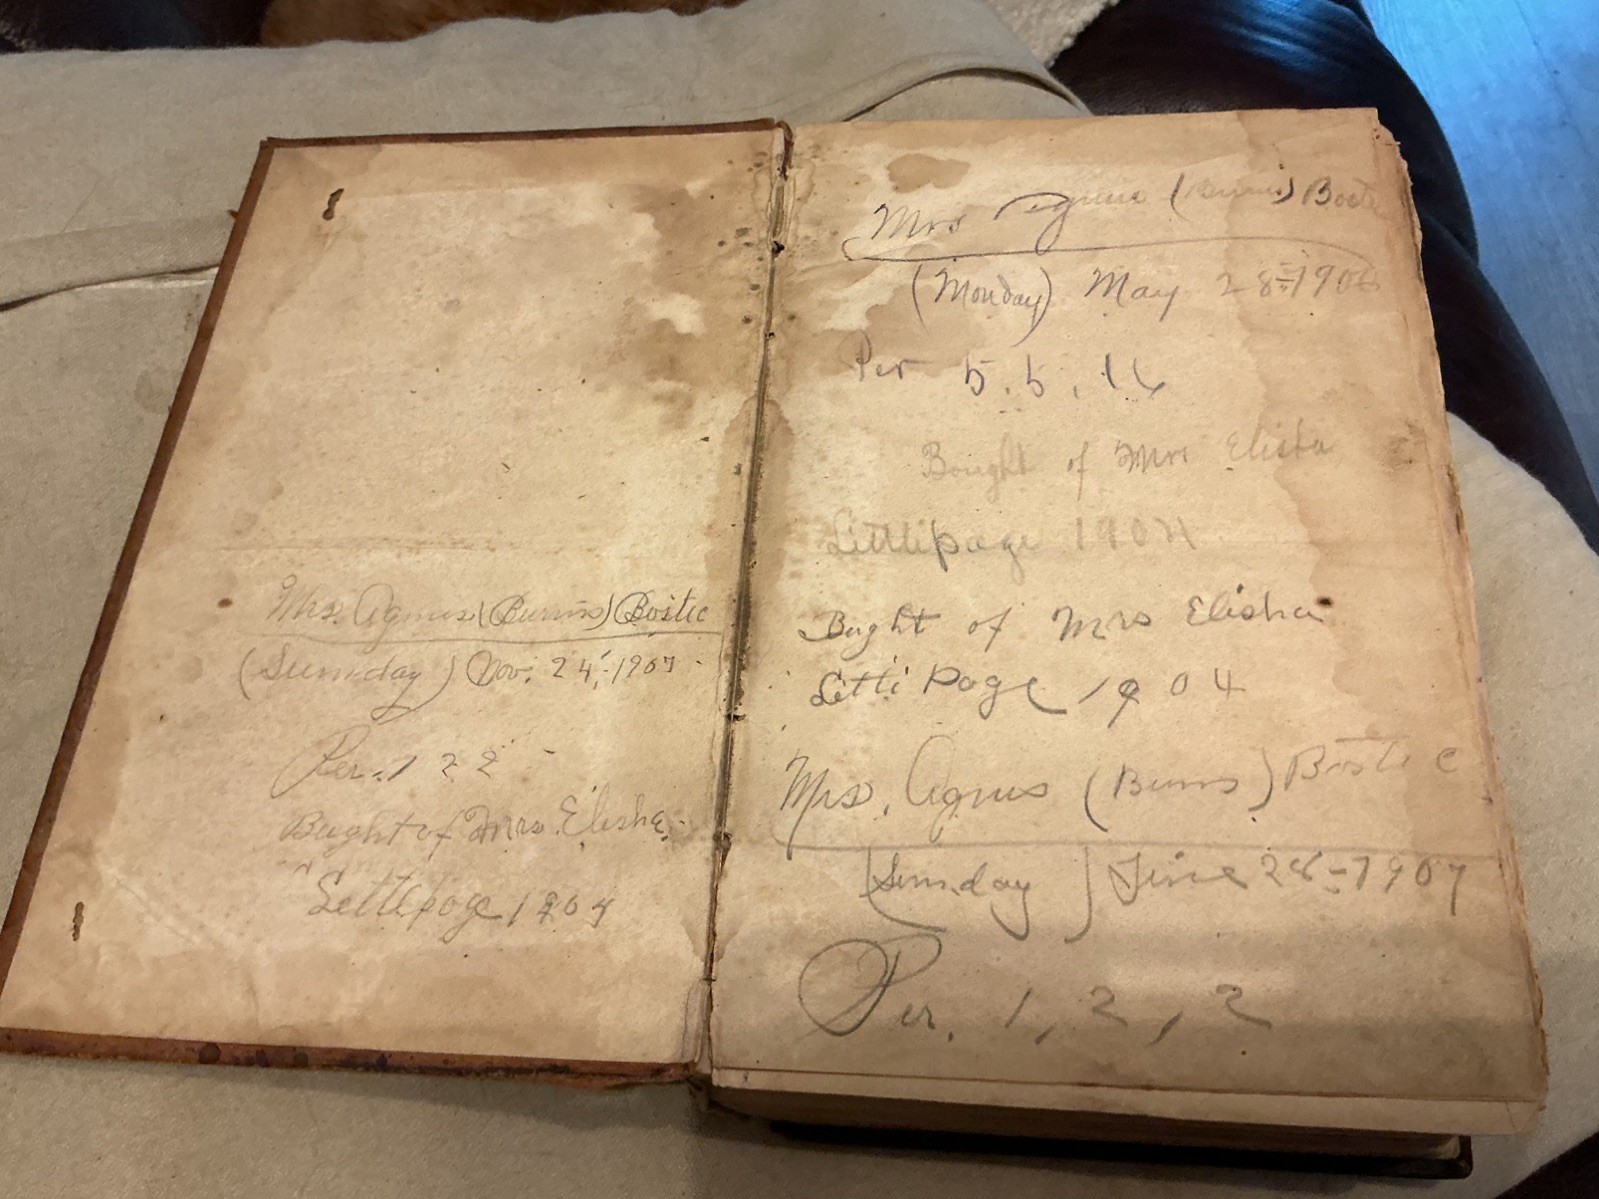 Mrs. Agnus (Burns) Bostic
(Sunday) Nov. 24,-1907
Per. 1 2 2
Bught of Mrs. Elisha
Lettlepage 1904
Mrs Agnus (Burns) Bostic
(Monday) May 28-1906
Per 5.5.16
Bought of Mrs Elisha
Littlepage 1904
Bught of Mrs Elisha
Litti Page 1904
Mrs. Agnus (Burns) Bostic
(Sunday) June 28-1907
Per. 1, 2, 2